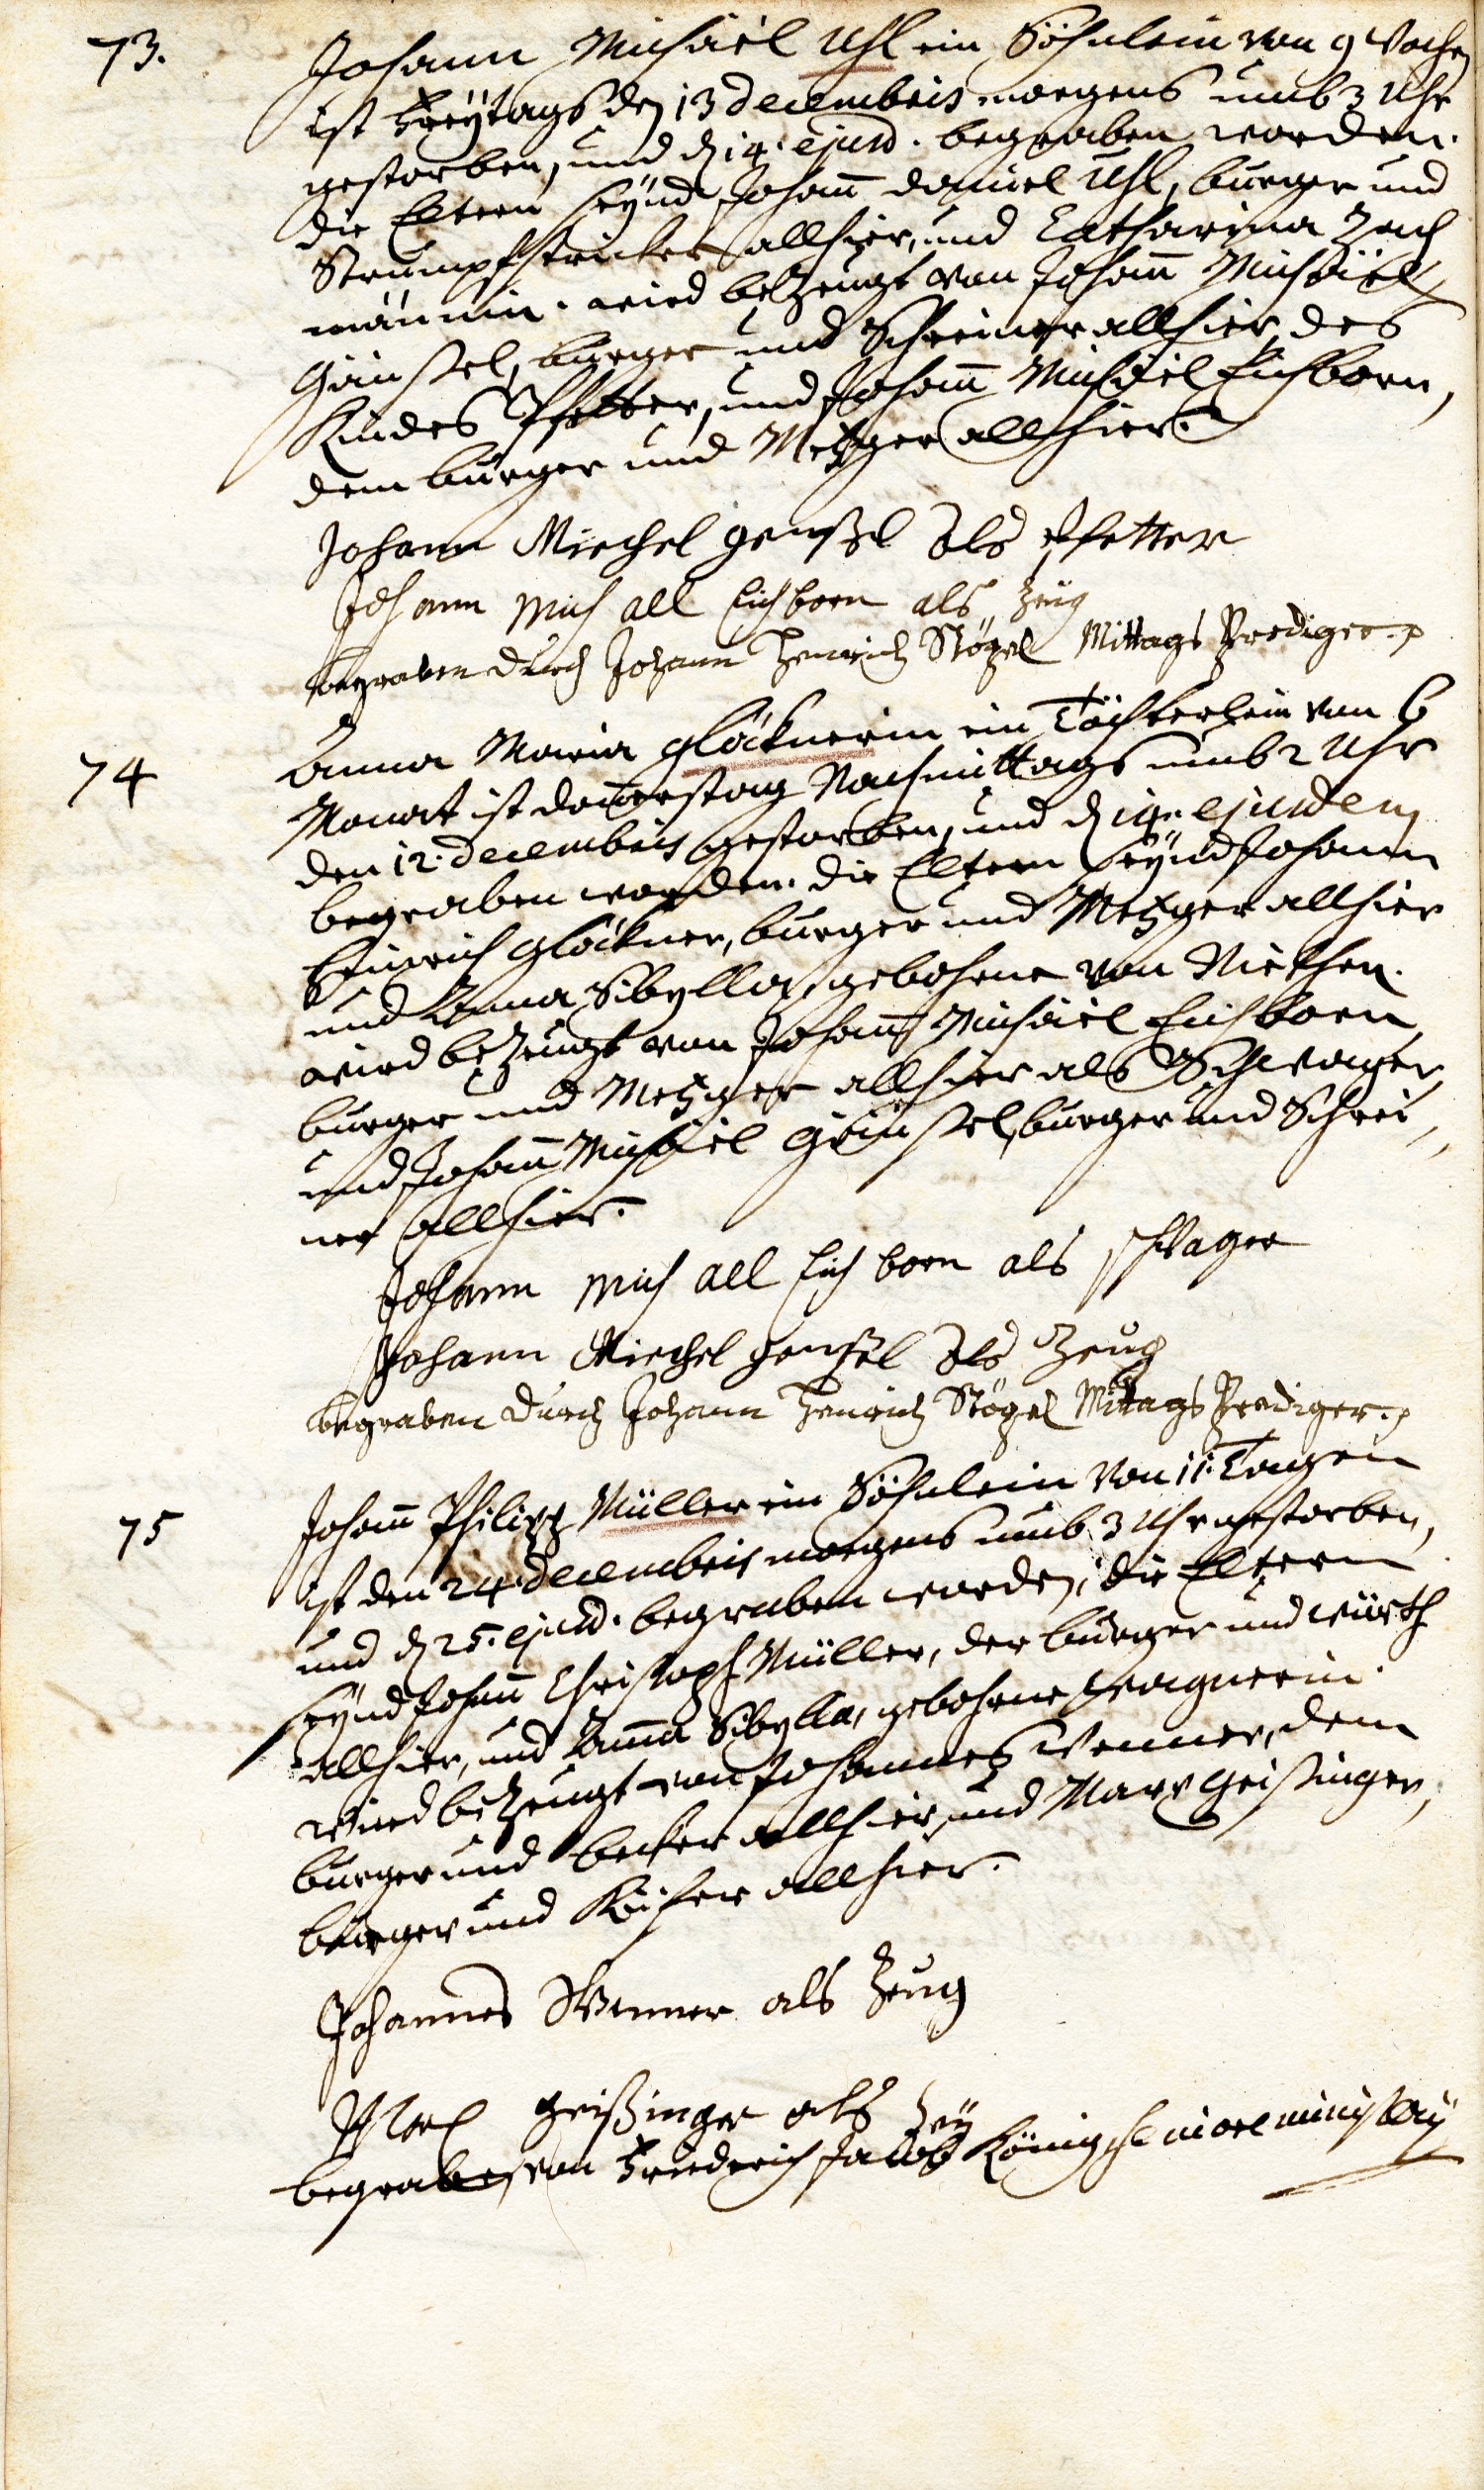 73. Johann Michael Uhl ein Söhnlein von 9 Wochen
ist Freÿtags den 13 decembris morgens umb 3 Uhr
gestorben, und d. 14. ejusd. begraben worden.
die Eltern seÿnd Johann daniel Uhl, burger und
Strumpfstricker allhier, und Catharina Zach
männin. wird bezeugt von Johann Michael
Gänssel, burger und Schreiner allhier, des
Kindes Pfetter, und Johann Michael Eichborn,
dem burger und Metzger allhier.
Johann Miechel genßel als Pfetter
Johann mich all Eichborn als Zeug
begraben durch Johann Henrich Stögel Mittags Prediger.
74 Anna Maria Glöcknerin ein Töchterlein von 6
Monat ist donnerstag Nachmittags umb 2 Uhr
den 12. decembris gestorben, und d. 14. ejusdem
begraben worden. die Eltern seÿnd Johann
Heinrich Glöckner, burger und Metzger allhier
und Anna Sibylla, gebohrne von Niethen.
wird bezeugt von Johann Michael Eichborn
burger und Metzger allhier als Schwager,
und Johann Michael Gänssel, burger und Schrei,,
ner allhier.
Johann mich all Eich born als schwager
Johann Miechel genßel als Zeug
begraben durch Johann Henrich Stögel Mittags Prediger.
75 Johann Philipp Müller ein Söhnlein von 11. Tagen
ist den 24. decembris morgens umb 3 Uhr gestorben,
und d. 25. ejusd. begraben worden, die Eltern
seÿnd Johann Christoph Müller, der burger und würth
allhier, und Anna Sibylla, gebohrne Wagnerin.
wird bezeugt von Johannes Wenner, dem
burger und becker allhier, und Marx Geissinger,
burger und Kiefer allhier.
Johannes Wenner als Zeug
Marx geißinger als Zeÿ
begraben von Friederich Jacob König seniore ministerÿ